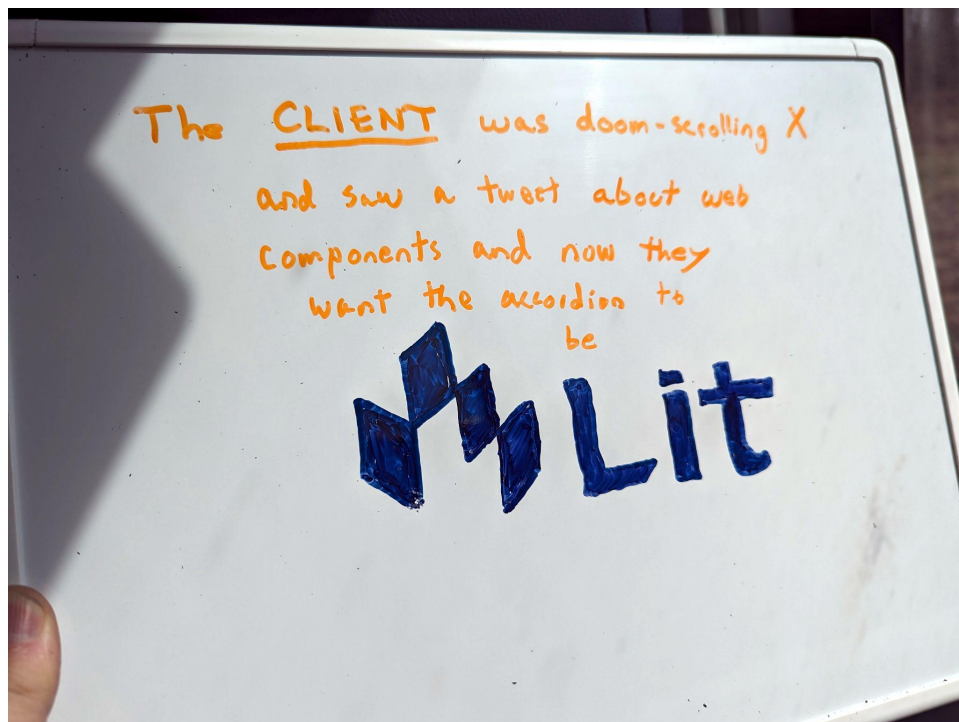 The CLIENT was doom-scrolling X
and saw a tweet about web
components and now they
want the accordion to
be
Lit